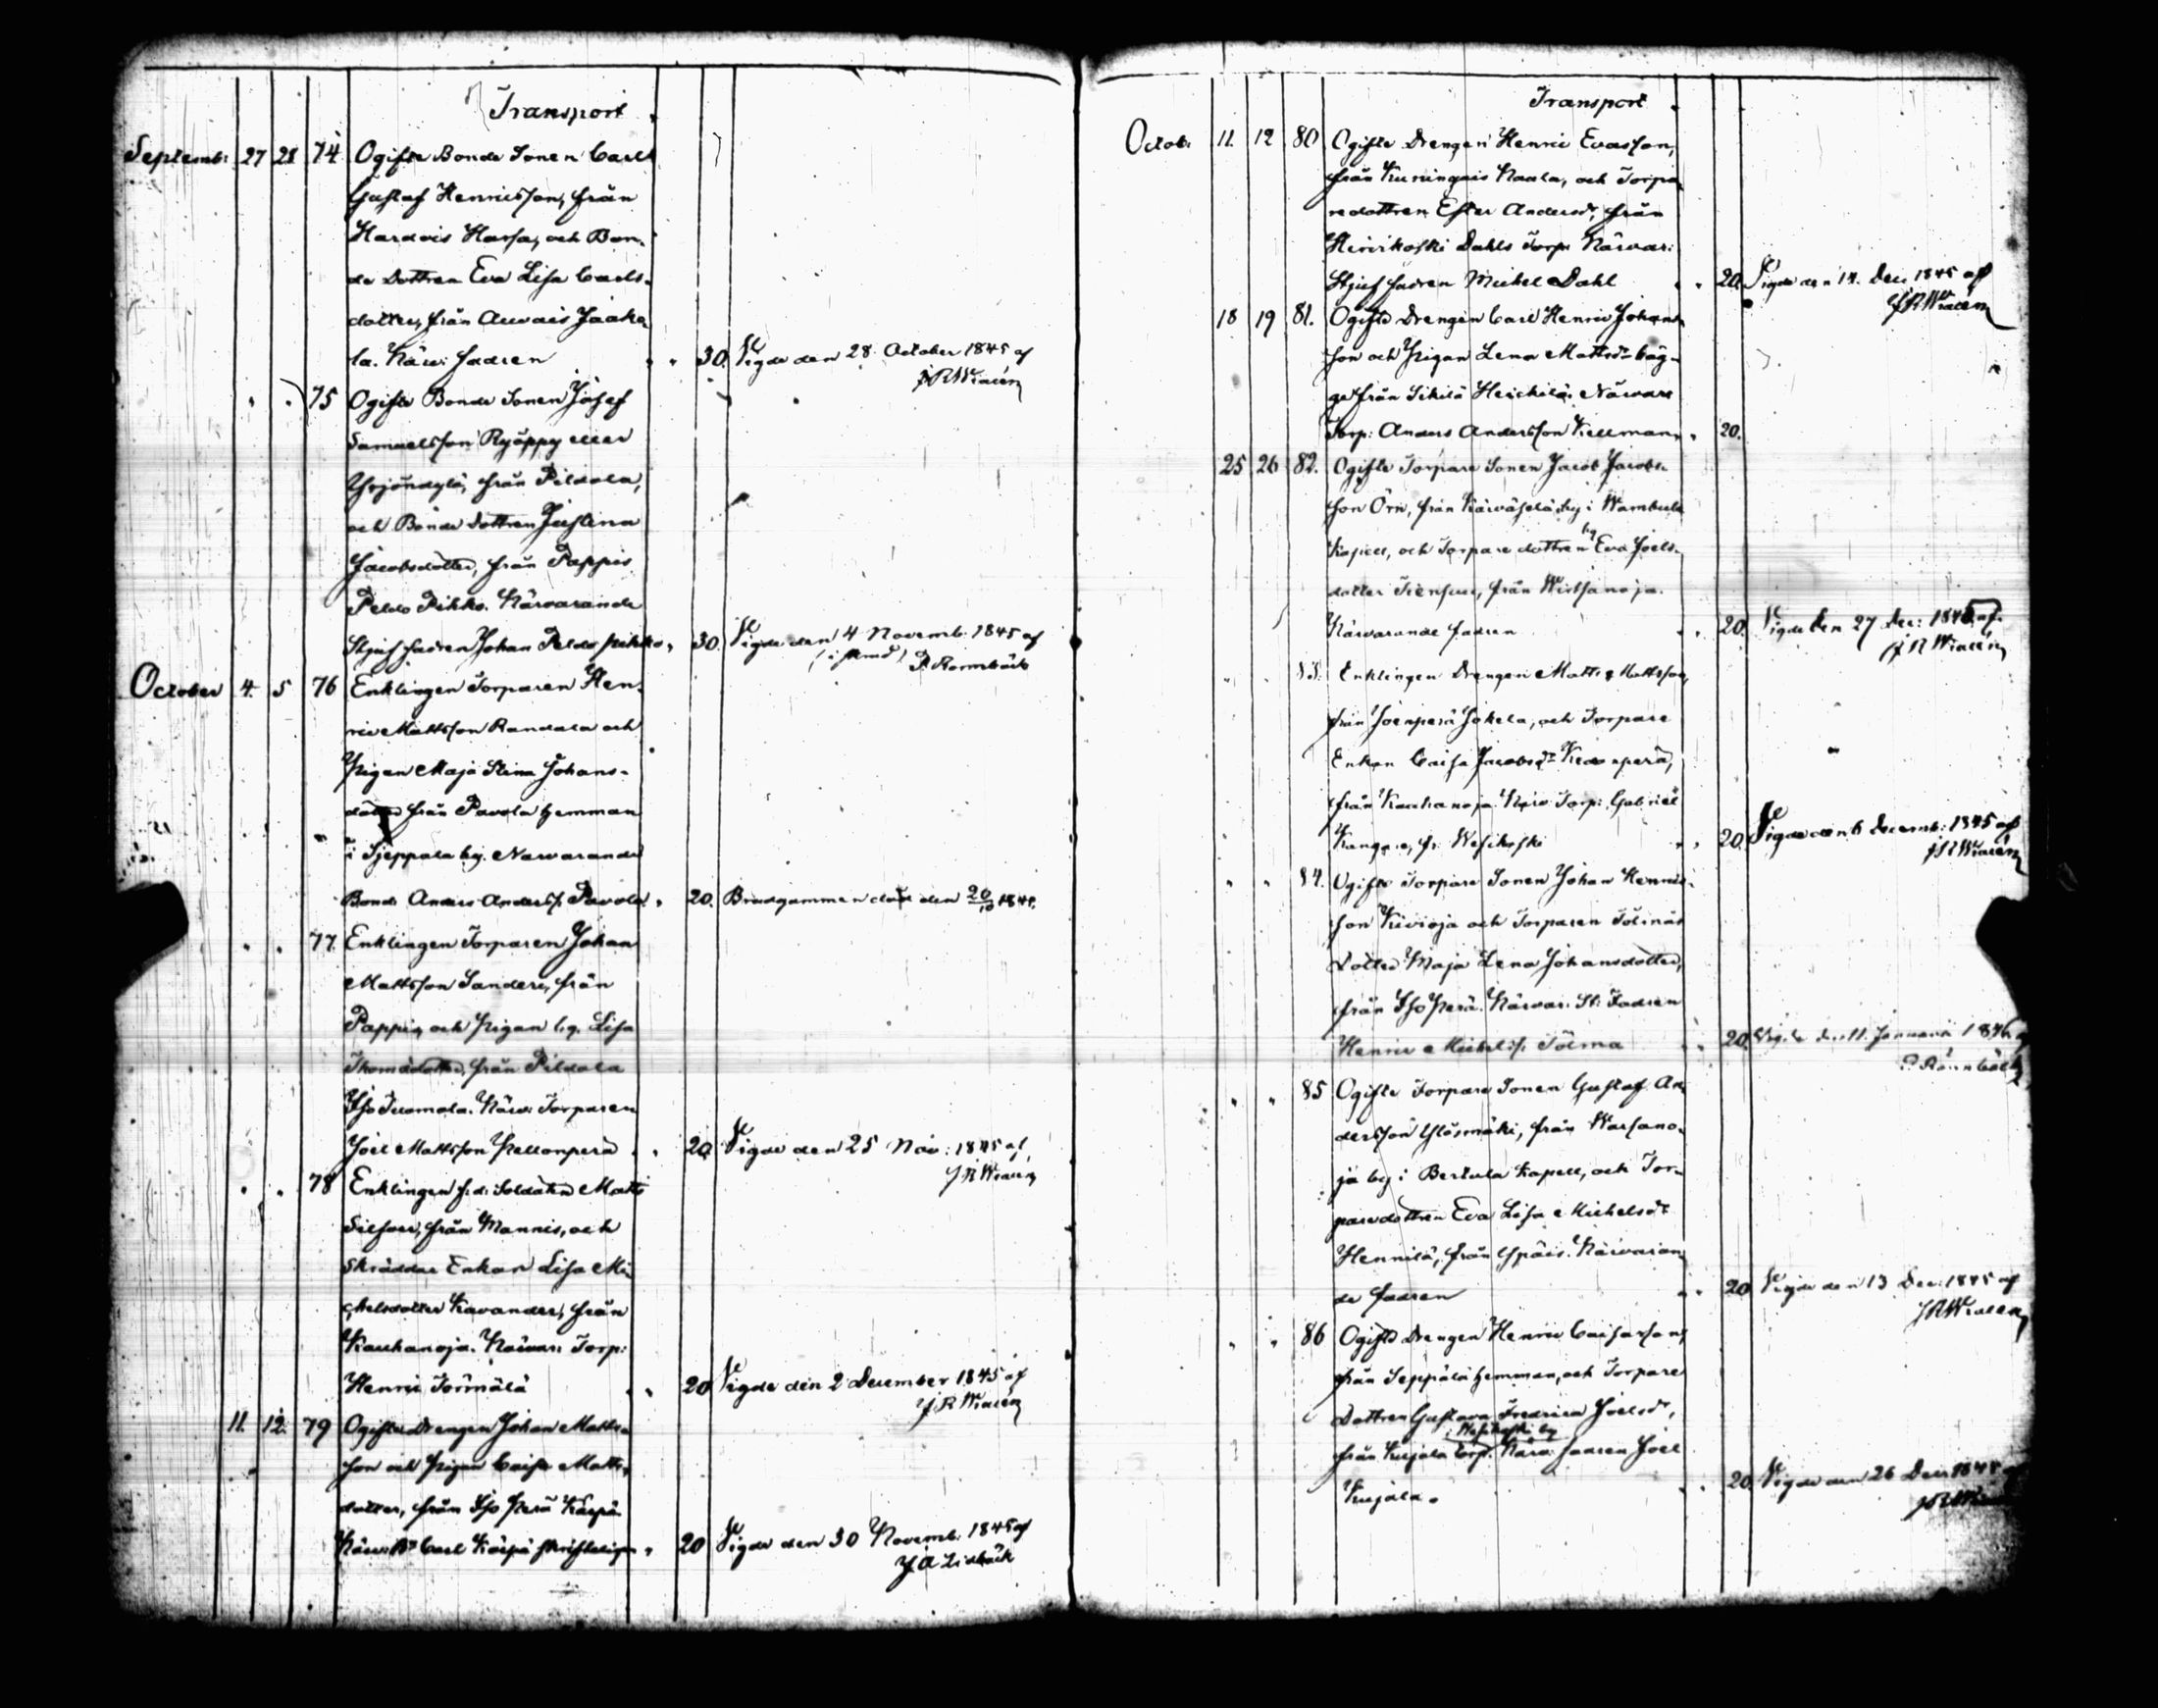 Transport
Septemb: 27 28 74 Ogifte Bonde Sonen Carl
Gustaf Henricsson, från
Hardvis Harfa, och Bon-
de Dottren Eva Lisa Carls-
dotter, från Auvais Jaako
la. Närv: fadren " " 30. Vigde den 28 October 1845 af
J R Wialén
" " 75 Ogifte Bonde Sonen Josef
Samuelsson Ryöppy eller
Yrjöndylä, från Pildola,
och Bonde dottren Justina
Jacobsdotter, från Pappis
Peldo Pihko. Närvarande
Stjuffadren Johan Peldopihko " 30. Vigde den 4 Novemb. 1845 af
P Rormbäck
October 4. 5 76 Enklingen Torparen Hen-
ric Mattsson Randala och
Pigan Maja Stina Johans-
dotter från Pavola hemman
i Sjeppala by. Närvarande
Bond: Anders Anderss: Pavola " 20. Brudgummen död den 20/10 184
" " 77. Enklingen Torparen Johan
Mattsson Sanders, från
Pappis, och Pigan h.q. Lisa
Thomasdotter, från Pildola
Iso Tuomola. Närv: Torparen
Joel Mattsson Pellonperä " " 20. Vigde den 25 Nov: 1845 af
J R Wialén
" " 78 Enklingen f.d. Soldaten Matts
Silfver, från Mannis, och
Skräddar Enkan Lisa Mi-
chelsdotter Kavander, från
Kauhanoja. Närvar: Torp:
Henric Tormälä " 20 Vigde den 2 December 1845 af
J R Wialén
11. 12. 79 Ogifte Drengen Johan Matts-
son och Pigan Caisa Matts-
dotter, från Iso Perä Kärpä
Närv: Bn Carl Kärpä skrifteligen " 20 Vigde den 30 Novemb. 1845 af
J A Lidbäck
Transport
Octob: 11. 12 80 Ogifte Drengen Henric Evasson,
från Kuningais Naala, och Torpa
redottren Ester Andersdr, från
Hirvikoski Dahls Torp. Närvar:
Stjuffadren Michel Dahl " 20. Vigde den 14. Dec: 1845 af
J R Wialén
18 19 81. Ogifte Drengen Carl Henric Johans
son och Pigan Lena Mattsdr bäg-
ge från Sikilä Heickilä. Närvar:
Torp: Anders Andersson Kellman " 20.
25 26 82. Ogifte Torpare Sonen Jacob Jacobs-
son Örn, från by i Wambula
Kapell, och Torpare dottren hq Eva Joels-
dotter från Wirtsanoja.
Närvarande fadren " " 20. Vigde den 27 Dec: 1845 af
J R Wialén
" " 83. Enklingen Drengen Matts Mattsson,
från Joenperä Jokela, och Torpare
Enkan Caisa Jacobsdr
från Kauhanoja. Närv: Torp: Gabriel
Kangare, fr. Wesikoski " " 20. Vigde den 6 Decemb: 1845 af
J R Wialén
" " 84. Ogifte Torpare Sonen Johan Henrics-
son Kivioja och Torparen Tolmas
Dotter Maja Lena Johansdotter,
från Iso Perä. Närvar: St: Fadren
Henric Michelss: Tolma " " 20. Vigde den 11. Januari 1846 af
P Rormbäck
" " 85 Ogifte Torpare Sonen Gustaf An-
dersson Ylösmäki, från Karsano-
ja by i Bertula Kapell, och Tor-
paredottren Eva Lisa Michelsdr
Hennilä, från Ypäis. Närvaran
de fadren " " 20 Vigde den 13 Dec: 1845 af
J R Wialén
" " 86 Ogifte Drengen Henric Caisasson,
från Seppälä hemman, och Torpare
Dottren Gustava Fredrica Joelsdr,
i Wesikoski by
från Kujala torp. Närv: fadren Joel
Kujala. " " 20. Vigde den 26 Dec: 1845 af
J R Wialén